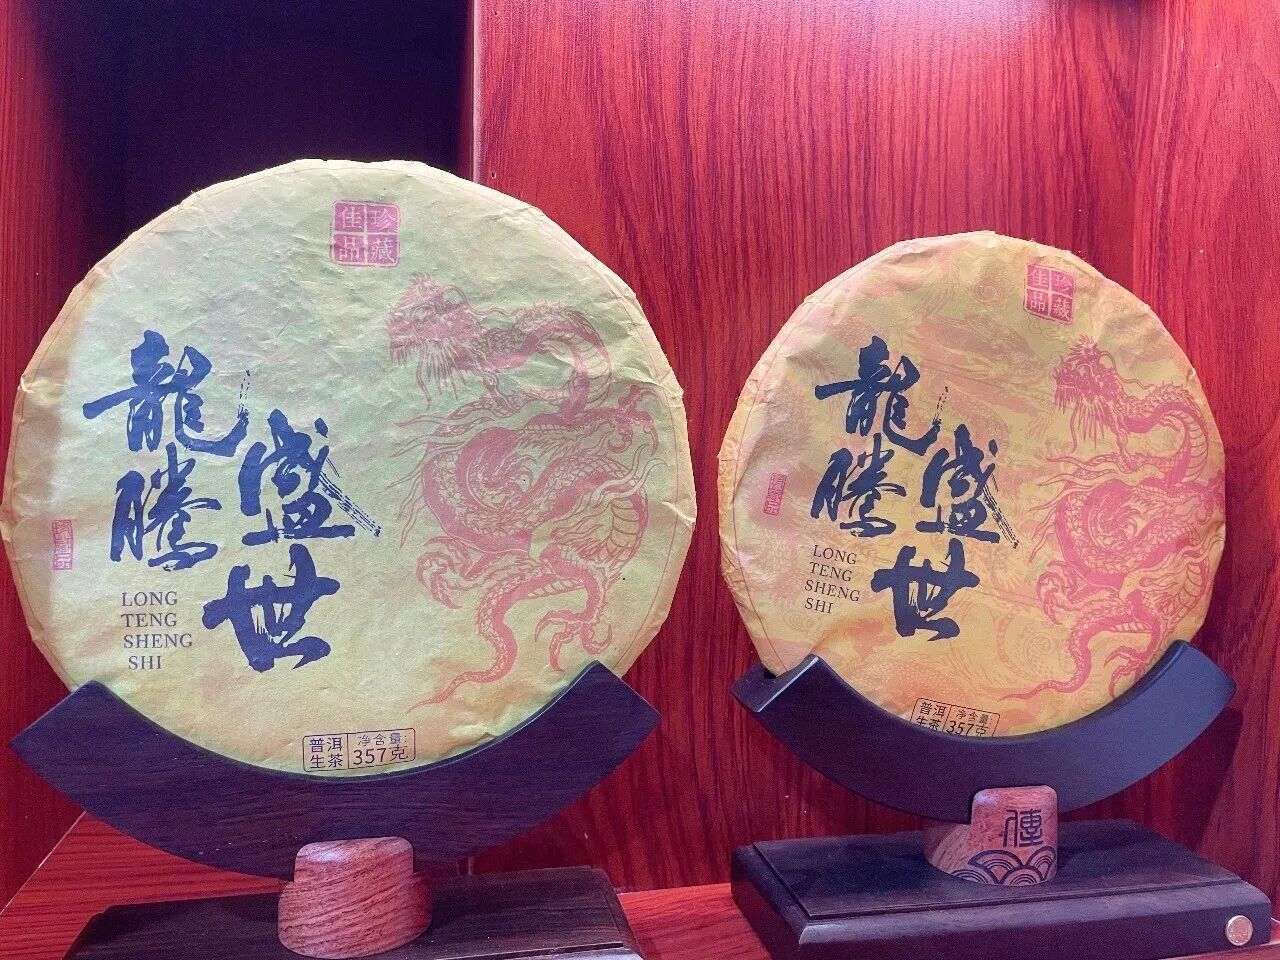 珍藏
佳品
龍騰
盛世
LONG
TENG
SHENG
SHI
普洱
生茶
净含量:
357克
珍藏
佳品
龍騰
盛世
LONG
TENG
SHENG
SHI
普洱
生茶
净含量:
357克
傳